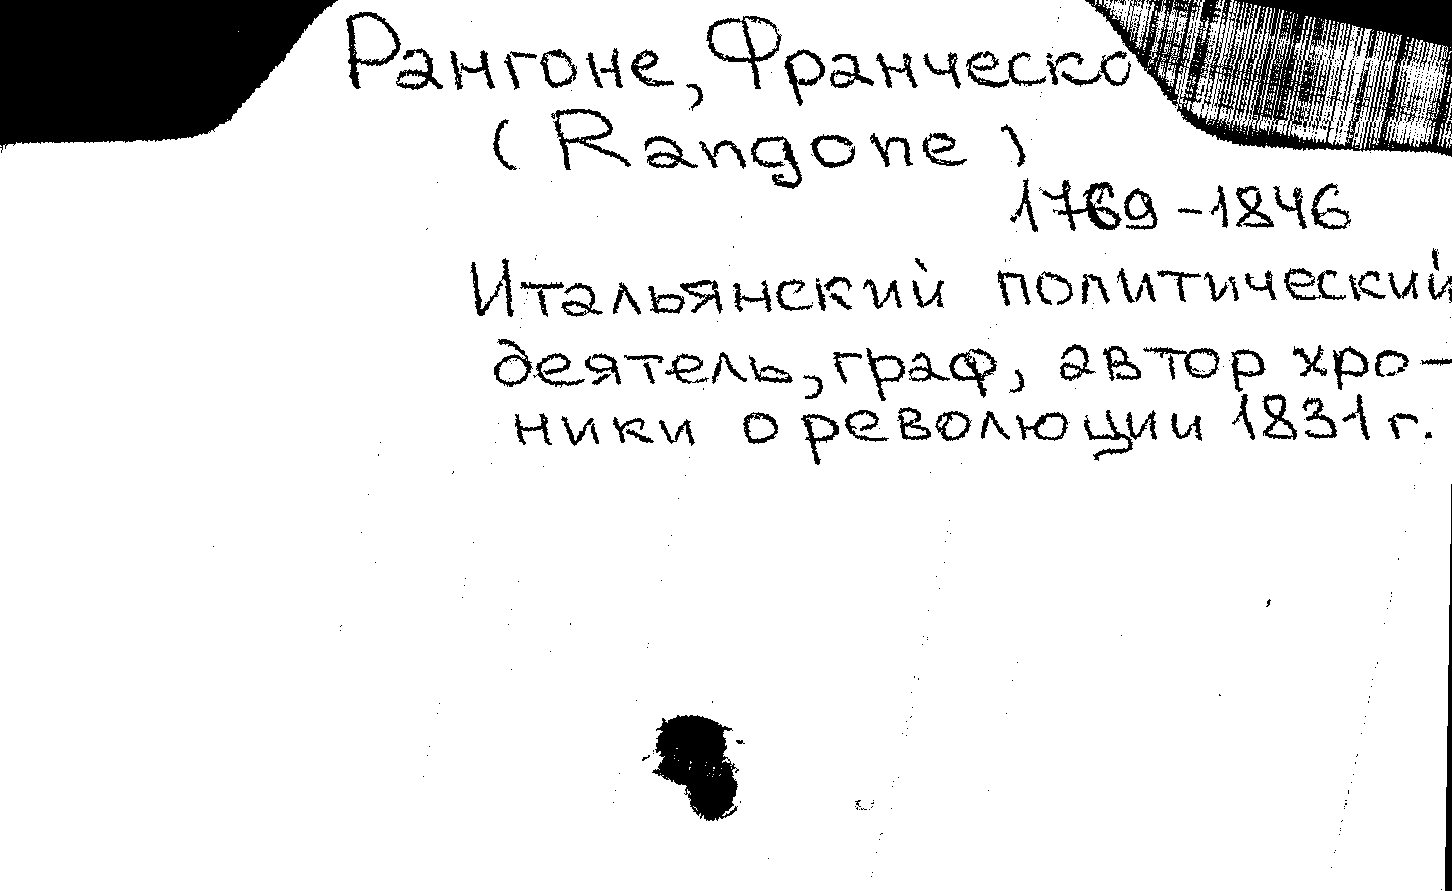 Рангоне, Франческо
(Rangone)
1769-1846
Итальянский политический
деятель, граф, автор хро-
ники о революции 1831 г.